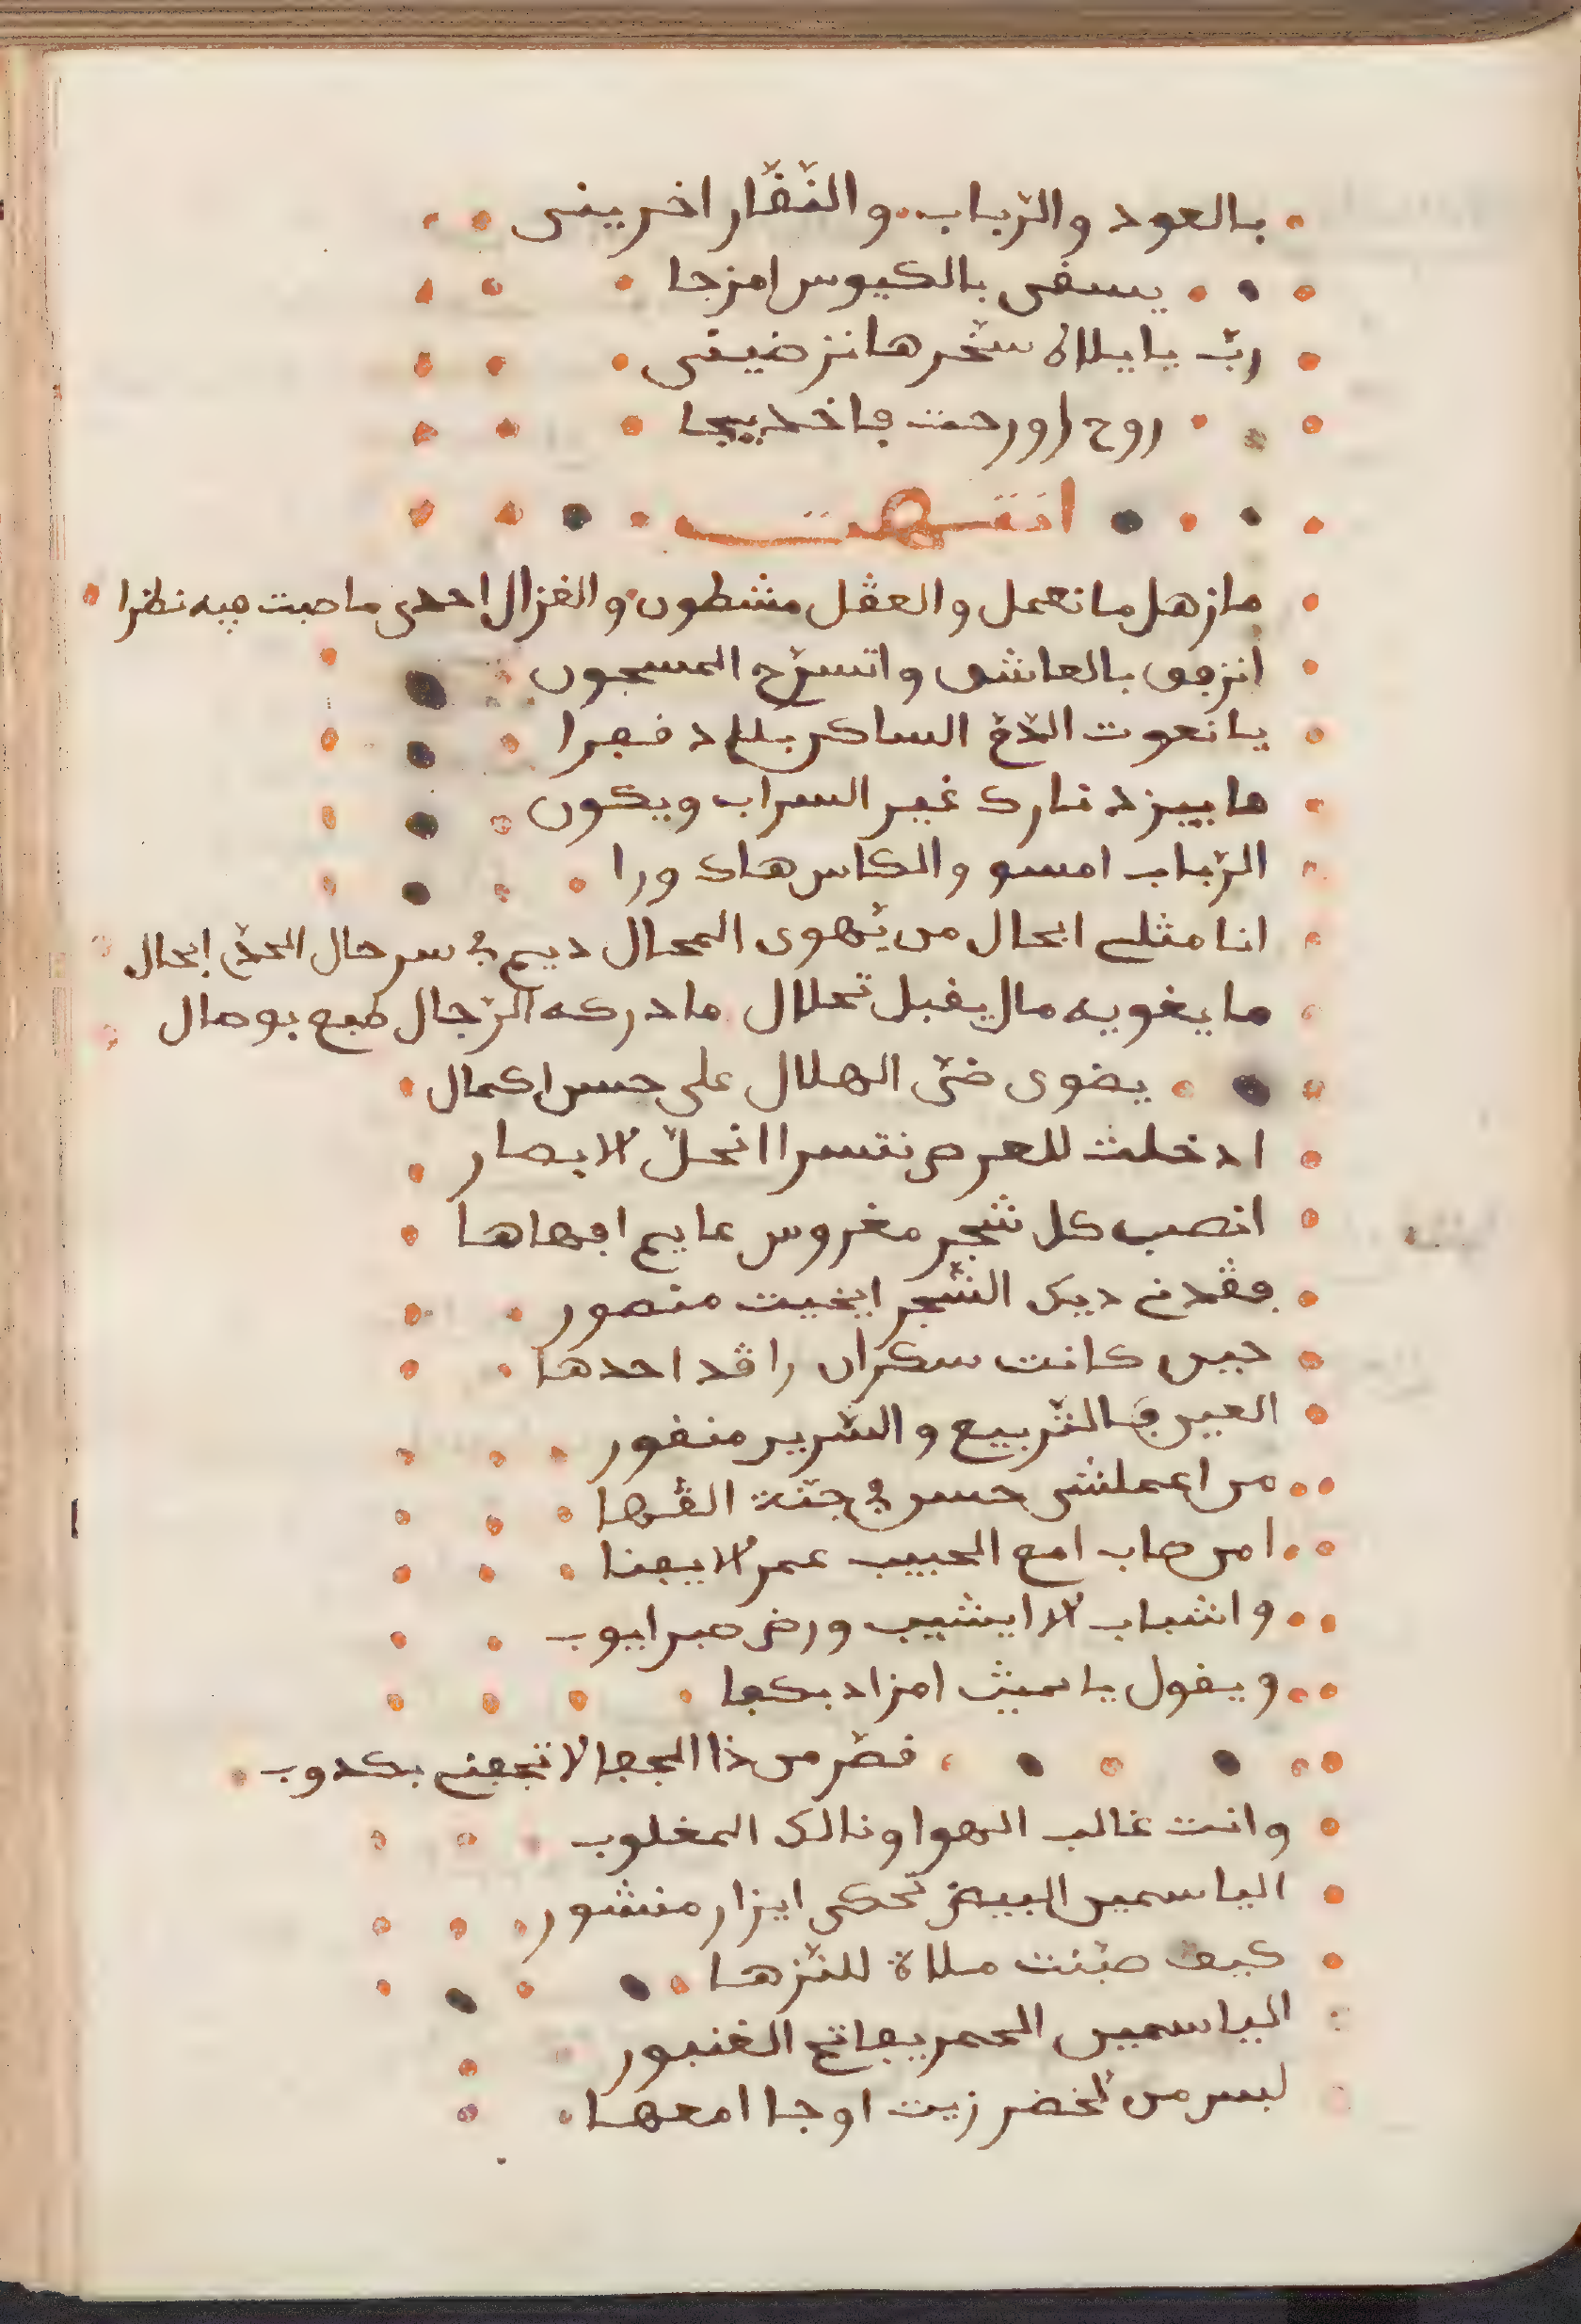 بالعود والرّباب والنّقّار اخرينى
يسقى بالكيوس امزجا
ربّ يا يلالاه سخّرها نزضينى
روح اورحت فاخديجا
انتهت
مازهل ما نعمل والعقل مشطون والغزال احدى ما صبت فيه نظرا
انزفق بالعاشق واتسرّح المسجون
يا نعوت الدّمّ الساكن بلاد فجرا
ما ييزد نارك غير السراب ويكون
الرّباب امسو والكاس هاك ورا
انا مثلى ابحال من يّهوى المحال ديم فى سر حال ابحال
ما يغويه مال يقبل تحلال ما دركه الرّجال طبع بوصال
يضوى ضىّ الهلال على حسن اكمال
ادخلت للعرص نتسرا انحلّ الابصار
انصب كل شجر مغروس عايم افهاها
فقدنى ديك الشّجر ايخيت منصور
حين كانت سكران راقد احدها
العين فى التّربيع والسّرير منقور
من اعملشى حسن فى جنّة القّها
امن صاب امع الحبيب عمر لا يفنا
واشباب لا ايشيب ورض صبر ايوب
ويقول يا امزاد بكفا
قصّر من ذا الجفا لا تجفنى بكدوب
وانت غالب الهوا ونالك المغلوب
الياسمين البيض تحكى ايزار منشور
كيف صبّنت ملاة للنّزها
الياسمين الحمر يفاتح الغنبور
لبسر من لخضر زيت اوجا امعها